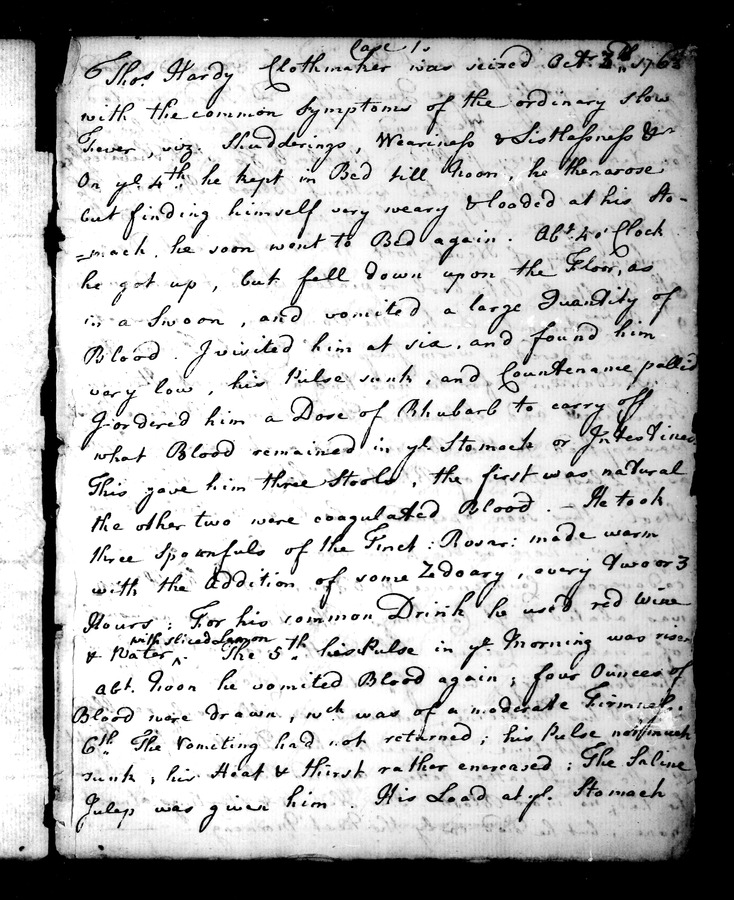 Case 1.
Thos. Hardy Clothmaker was seized Octr. 3d. 1762
with the common Symptoms of the ordinary slow
Fever, viz. Shudderings, Weariness & Listlessness &c
On ye. 4th. he kept in Bed till Noon, he then arose
but finding himself very weary & loaded at his Sto-
=mach, he soon went to Bed again. Abt. 4 o'Clock
he got up, but fell down upon the Floor, as
in a Swoon, and vomited a large Quantity of
Blood. I visited him at six, and found him
very low, his Pulse sunk, and Countenance pallid
I ordered him a Dose of Rhubarb to carry off
what Blood remained in ye. Stomach or Intestines
This gave him three Stools, the first was natural
the other two were coagulated Blood. — He took
three Spoonfuls of the Tinct: Rosar: made warm
with the Addition of some Zedoary, every two or 3
Hours; For his common Drink he used red wine
with sliced Lemon
& Water ^. The 5th. his Pulse in ye. Morning was risen
abt. Noon he vomited Blood again; four Ounces of
Blood were drawn, wch. was of a moderate Firmness.
6th. The Vomiting had not returned; his Pulse not much
sunk, his Heat & thirst rather encreased; The Saline
Julep was given him. His Load at ye. Stomach